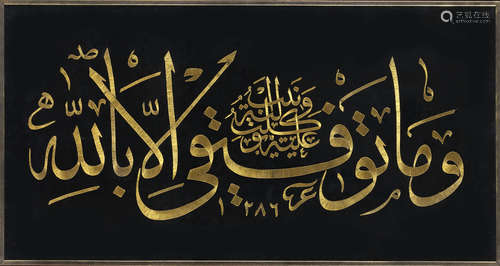 وما توفيقي الا بالله
عليه توكلت واليه انيب
١٢٨٦
艺狐在线